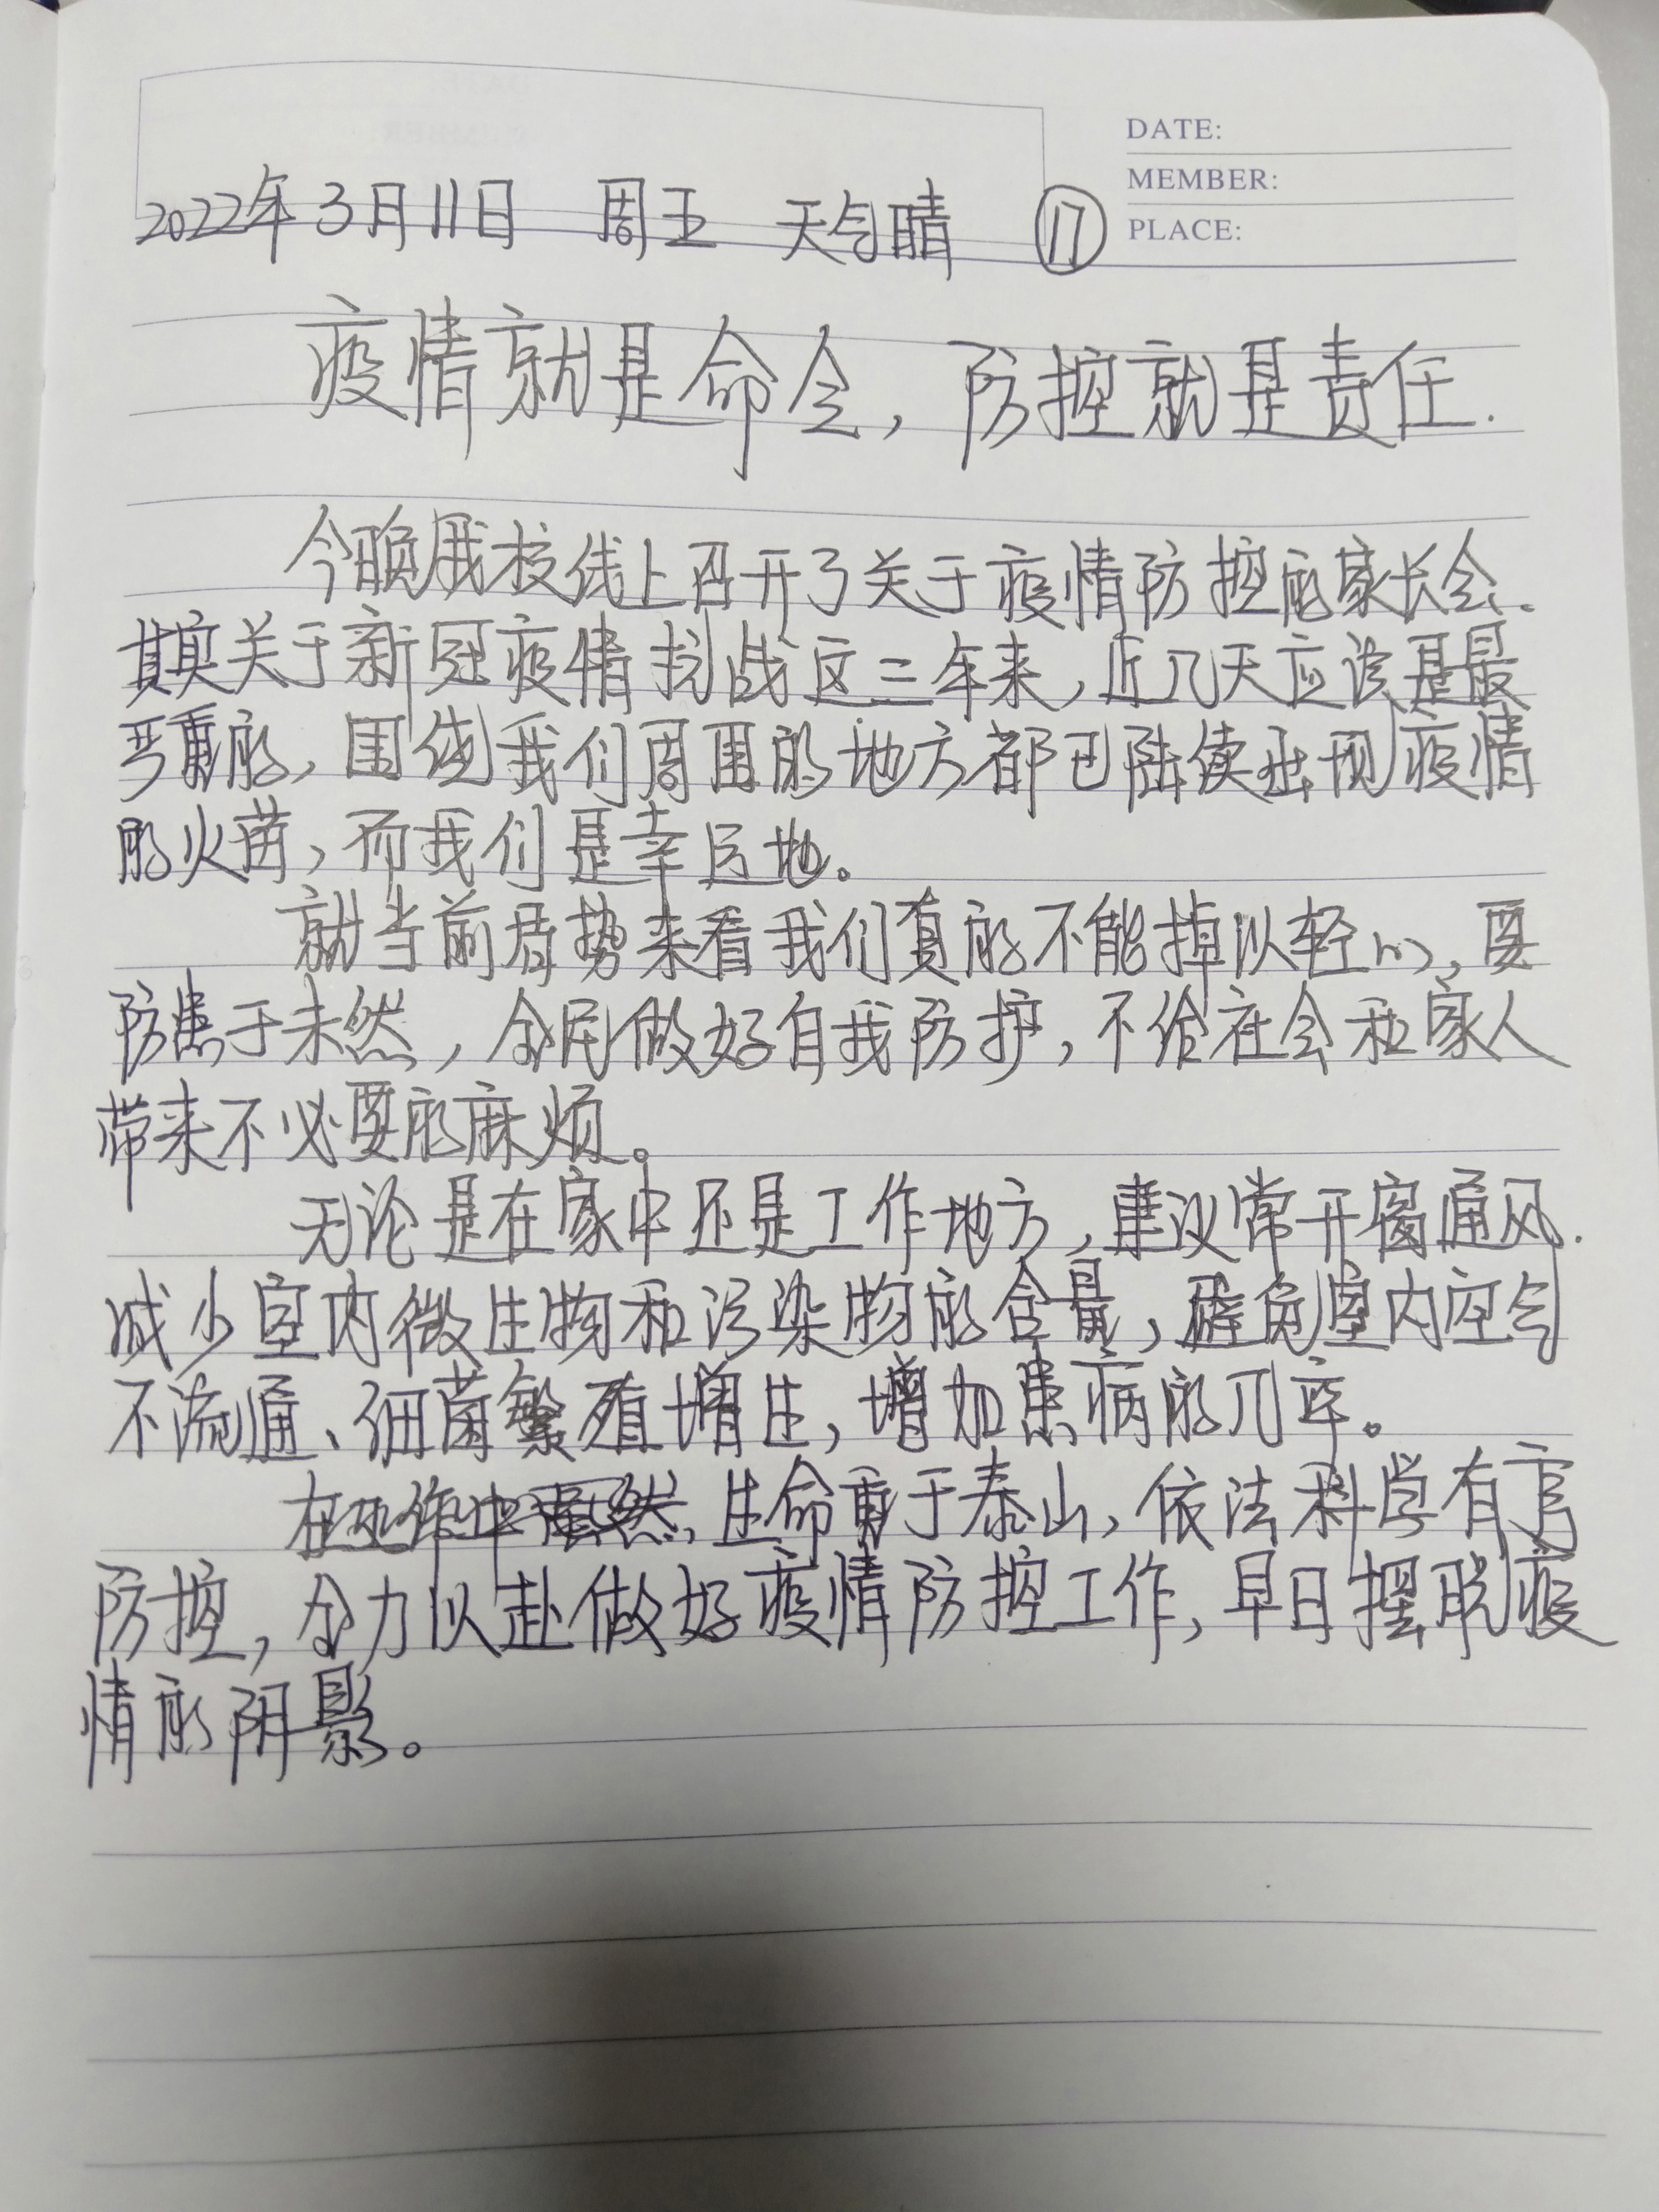 DATE:
MEMBER:
PLACE:
2022年3月11日 周五 天气晴 ⑰
疫情就是命令，防控就是责任.
今晚我校线上召开了关于疫情防控的家长会.
其实关于新冠疫情挑战这三年来，近几天应该是最
严重的，围绕我们周围的地方都已陆续出现疫情
的火苗，而我们是幸运地。
就当前局势来看我们真的不能掉以轻心，要
防患于未然，全民做好自我防护，不给社会和家人
带来不必要的麻烦。
无论是在家中还是工作地方，建议常开窗通风.
减少室内微生物和污染物的含量，避免室内空气
不流通、细菌繁殖增生，增加患病的几率。
生命重于泰山，依法科学有序
防控，全力以赴做好疫情防控工作，早日摆脱疫
情的阴影。